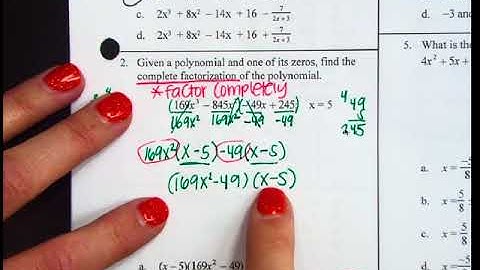 c. 2x³ + 8x² − 14x + 16 − 7/(2x+3)
d. 2x³ + 8x² − 14x + 16 + 7/(2x+3)
2. Given a polynomial and one of its zeros, find the
complete factorization of the polynomial.
*Factor Completely
(169x³ − 845x²)(−49x + 245) x = 5
169x² 169x² −49 −49
169x²(x−5) −49(x−5)
(169x²−49)(x−5)
a. (x − 5)(169x² − 49)
4
49
5
245
d. −3 and
5. What is the
4x² + 5x +
a. x =
b. x = 5/8
c. x = 5/8
d. x =